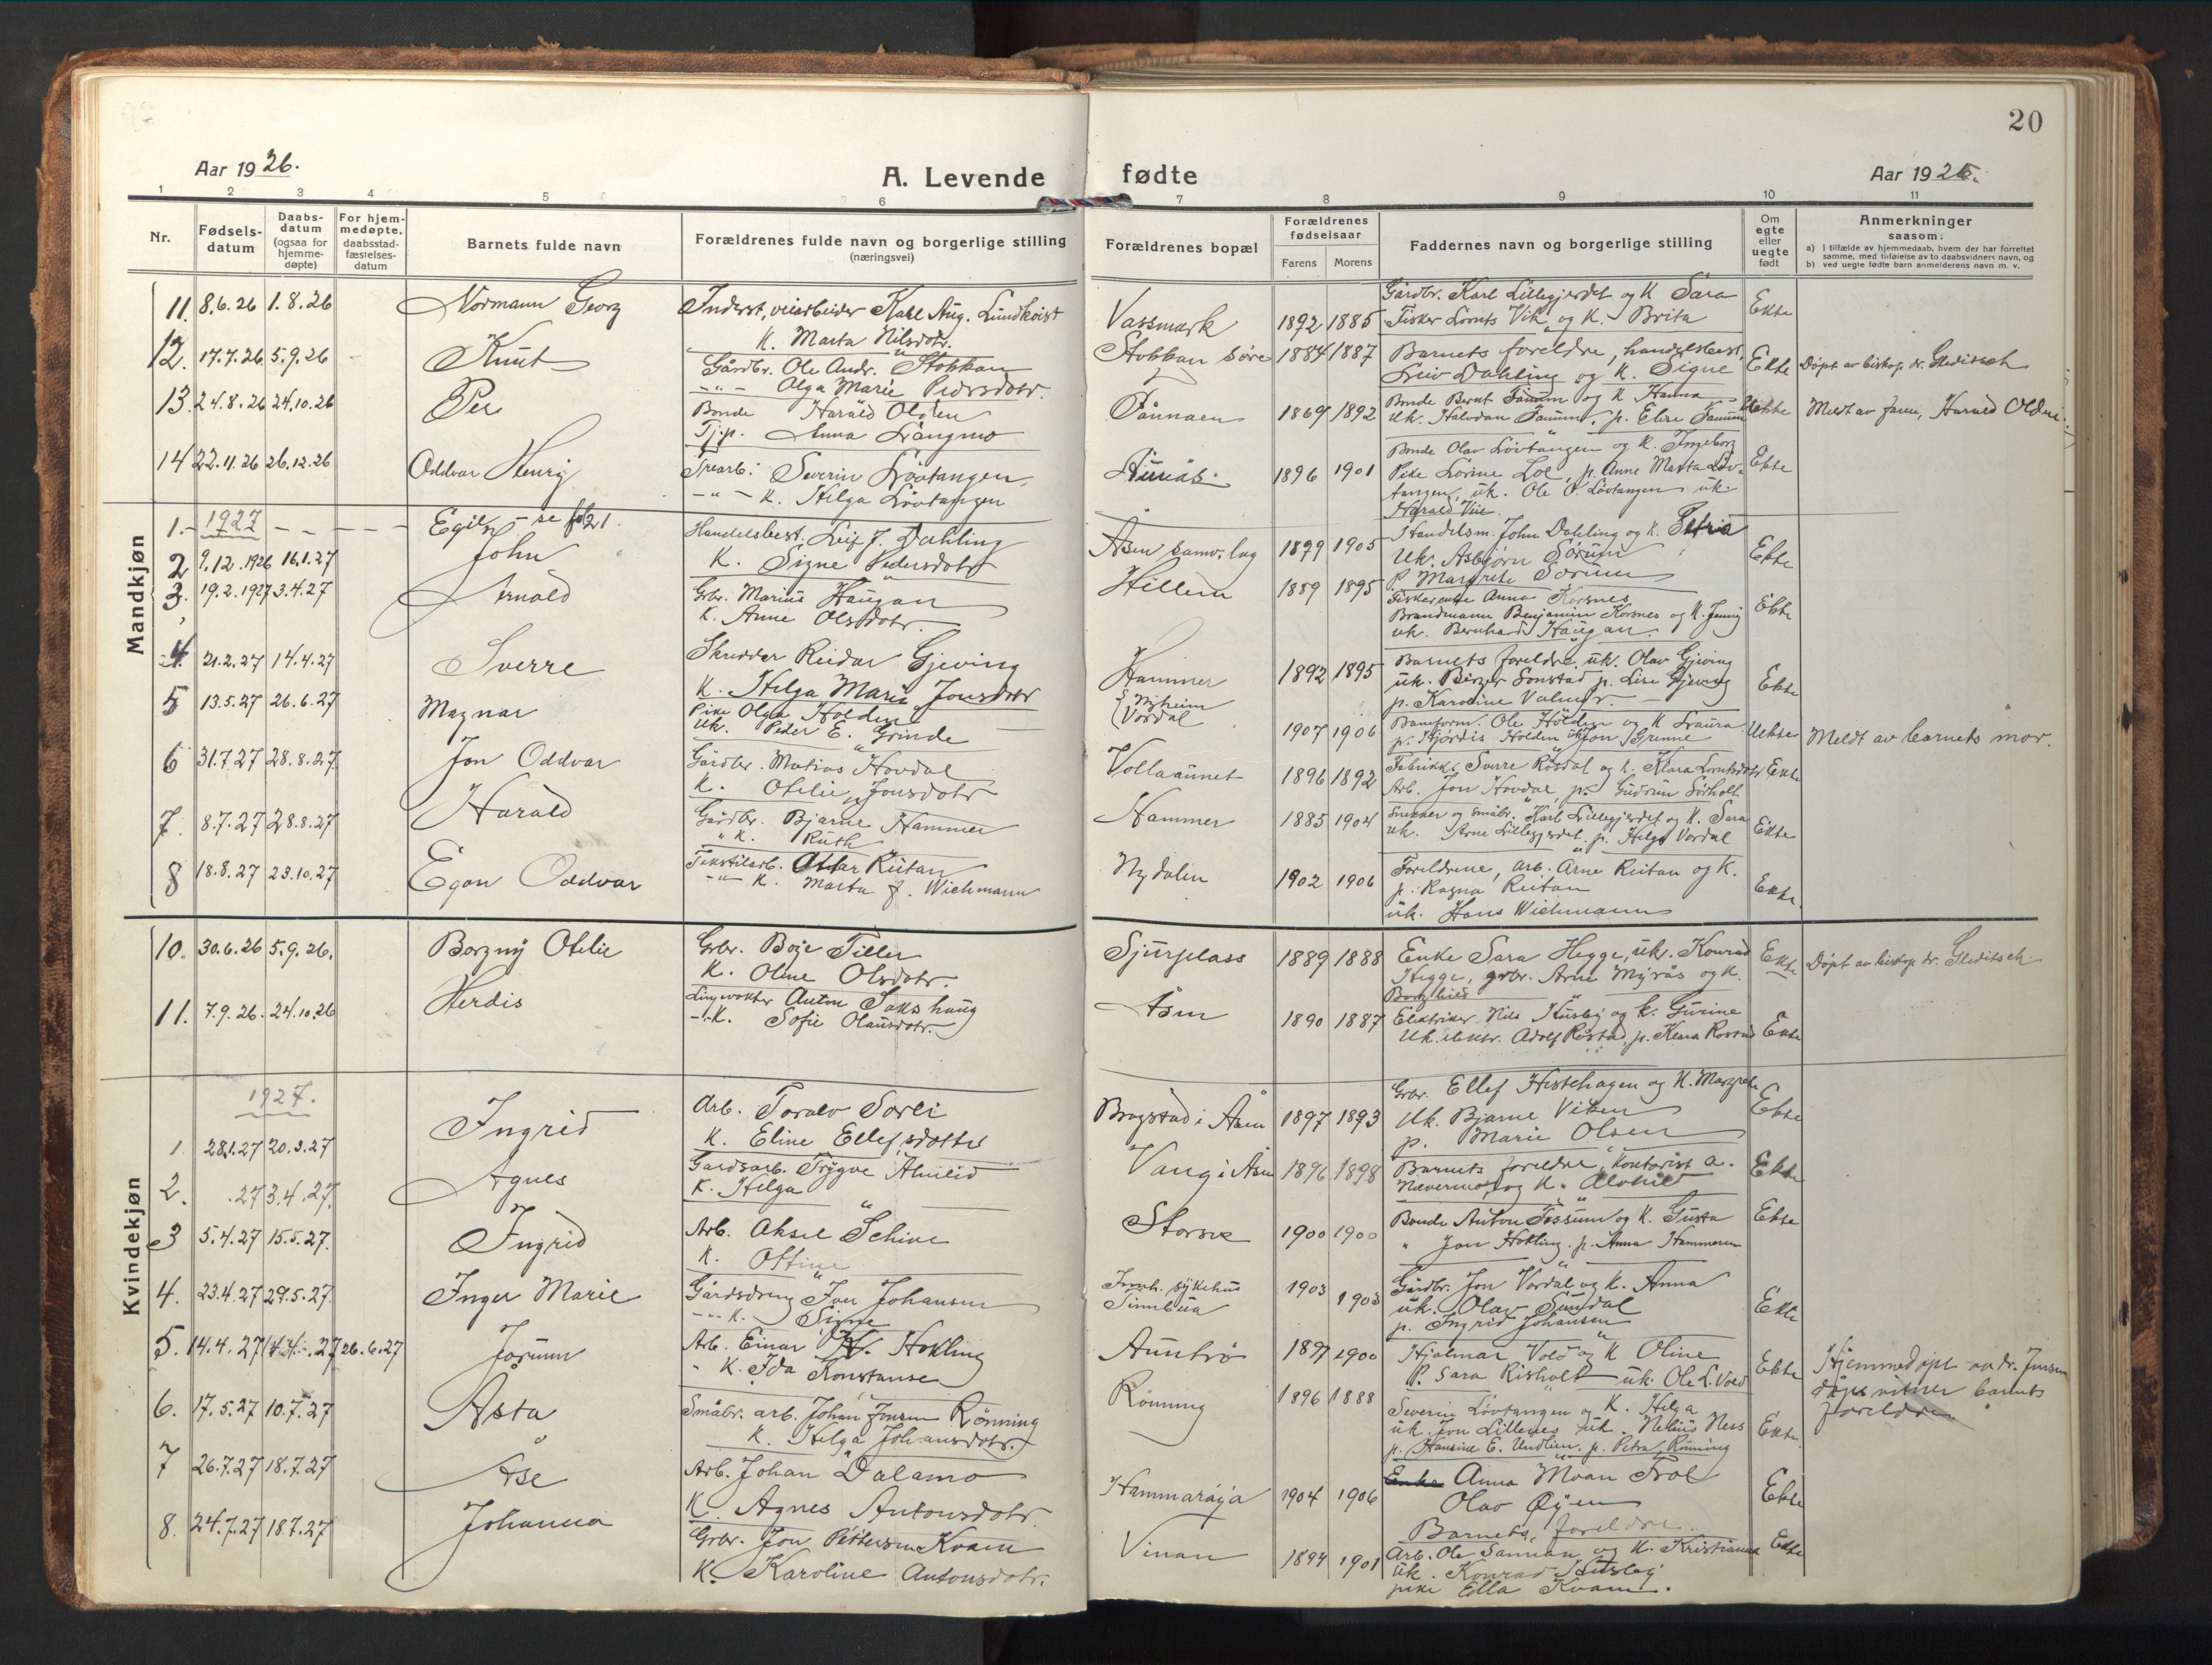 20
Aar 1926.
A. Levende
fødte
Aar 1926.
1 2 3 4 5 6 7 8 9 10 11
Nr.
Fødsels-
datum
Daabs-
datum
(ogsaa for
hjemme-
døpte)
For hjem-
medøpte,
daabsstad-
fæstelses-
datum
Barnets fulde navn
Forældrenes fulde navn og borgerlige stilling
(næringsvei)
Forældrenes bopæl
Forældrenes
fødselsaar
Farens Morens
Faddernes navn og borgerlige stilling
Om
egte
eller
uegte
født
Anmerkninger
saasom:
a) I tilfælde av hjemmedaab, hvem der har forrettet
samme, med tilføielse av to daabsvidners navn, og
b) ved uegte fødte barn anmelderens navn m. v.
Mandkjøn
11. 8.6.26 1.8.26 Normann Georg
Inderst, veiarbeider Karl Aug. Lundkvist
K. Marta Nilsdotr.
Vassmark 1892 1885
Gårdbr. Karl Lillegjerdet og K Sara
Fisker Lornts Vik og K. Brita
Ekte
12. 17.7.26 5.9.26 Knut
Gårdbr. Ole Andr. Stokkan
-"- Olga Marie Pedersdotr.
Stokkan søre 1884 1887
Barnets foreldre, handelsbest.
Leiv Dahling og K. Signe
Ekte Døpt av biskop dr. Gleditsch
13. 24.8.26 24.10.26 Per
Bonde Harald Olden
Tj.p. Anna Langmo
1869 1892
Bonde Bernt og K Hanna
Uk. Halvdan p. Else
Uekte Meldt av faren, Harald Olden
14 22.11.26 26.12.26 Oddvar Henry
Severin Løvtangen
-"- K. Helga Løvtangen
1896 1901
Bonde Olav Løvtangen og K. Ingeborg
Pike Lorine Loe, p. Anne Marta Løv-
tangen, uk. Ole O. Løvtangen uk.
Harald Vie
Ekte
1. - 1927 - - - - - Egil - se fol 21.
2 9.12.1926 16.1.27 John
Handelsbest. Leif J. Dahling
K. Signe Pedersdotr
Åsen samv. lag 1899 1905
Handelsm. John Dahling og K. Petria
Uk. Asbjørn Sørum
P. Margrete Sørum
Ekte
3. 19.2.1927 3.4.27 Arnold
Gbr. Marius Haugan
K. Anne Olsdotr.
Hillem 1889 1895
Fiskerenke Anna Korsnes
Brandmann Benjamin Korsnes og K. Jenny
uk. Bernhard Haugan.
Ekte
4. 21.2.27 14.4.27 Sverre
Skredder Reidar Gjeving
K. Helga Marie Jonsdotr
Hammer 1892 1895
Barnets foreldre. uk. Olav Gjeving
uk. Birger Sonstad p. Lise Gjeving
p. Karoline Valmyr.
Ekte
5 13.5.27 26.6.27 Magnar
Pike Olga Holden
Uk. Peder E. Grinde
Nyheim
Vordal
1907 1906
Ole Holden og K Laura
p. Hjørdis Holden uk Jon Grenne
Uekte Meldt av barnets mor.
6 31.7.27 28.8.27 Jon Oddvar
Gårdbr. Matias Hovdal
K. Otelie Jonsdotr
Vollaunet 1896 1892
Fabrikks Sverre Røsdal og K. Klara Lorntsdotr
Arb. Jon Hovdal p. Gudrun Sørholt
Ekte
7. 8.7.27 28.8.27 Harald
Gårdbr. Bjarne Hammer
" K. Ruth
Hammer 1885 1904
Snekker og småbr. Karl Lillegjerdet og K. Sara
uk. Arne Lillegjerdet. p. Helga Vordal
Ekte
8 18.8.27 23.10.27 Egon Oddvar
Tekstilarb. Ottar Reitan
-"- K. Marta f. Wichmann
Nydalen 1902 1906
Foreldrene, arb. Arne Reitan og K.
p. Ragna Reitan
uk. Hans Wichmann
Ekte.
Kvindekjøn
10. 30.6.26 5.9.26. Borgny Otelie
Grbr. Boje Tiller
K. Oline Olsdotr.
Sjurplass 1889 1888
Enke Sara Hegge, uk. Konrad
Hegge, grbr. Arne Myrås og K.
Borghild
Ekte Døpt av biskop dr. Gleditsch
11. 7.9.26. 24.10.26 Herdis
Linjevokter Anton Sakshaug
-"- K. Sofie Olausdotr.
Åsen 1890 1887
Elektriker Nils Husby og K. Gurine
Uk. elektr. Adolf Røstad, p. Klara Røstad
Ekte
1927.
1. 28.1.27 20.3.27 Ingrid
Arb. Toralv Sorli
K. Eline Ellefsdotter
Brogstad i Åsen 1897 1893
Grbr. Ellef Hestehagen og K. Margrete
Uk. Bjarne Viken
p. Marie Olsen
Ekte
2. .27 3.4.27. Agnes
Gardsarb. Trygve Amlid
K. Helga
Vang i Åsen 1896 1898
Barnets foreldre, Kontorist A.
Nævermo og K. Alvhild
Ekte
3 5.4.27 15.5.27. Ingrid
Arb. Aksel Schive
K. Ottine
Storve 1900 1900
Bonde Anton Fossum og K. Gusta
" Jon Hokling. p. Anna Hammeren
Ekte
4. 23.4.27 29.5.27. Inger Marie
Gårdsdreng Iver Johansen
-"- K. Signe
Innh. sykehus
Sinnbua
1903 1903
Gårdbr. Jon Vordal og K. Anna
uk. Olav Sundal
p. Ingrid Johansen
Ekte
5. 14.4.27 14.4.27 26.6.27 Jorunn
Arb. Einar H. Hokling
" K. Ida Konstanse
Auntrø 1897 1900
Hjalmar Vold og K Oline
P. Sara Risholt uk. Ole L. Vold
Ekte Hjemmedøpt av dr. Jensen
dåpsvitner barnets
foreldre.
6. 17.5.27 10.7.27 Asta
Småbr. arb. Johan Jonsen Rønning
K. Helga Johansdotr.
Rønning 1896 1888
Severin Løvtangen og K. Helga
uk. Jon Lillenes uk. Nelius Ness
p. Hansine E. Undlien. p. Petra Rønning
Ekte.
7 26.7.27 18.7.27 Åse
Arb. Johan Dalamo
K. Agnes Antonsdotr.
Hammarøya 1904 1906
Enke Anna Moan Frol
Olav Øyen
Barnets foreldre.
Ekte
8. 24.7.27 18.7.27 Johanna
Grbr. Jon Pettersen Kvam
K. Karoline Antonsdotr.
Vinan 1894 1901
Arb. Ole Sannan og K. Kristianna
uk. Konrad Husby
pike Ella Kvam.
Ekte